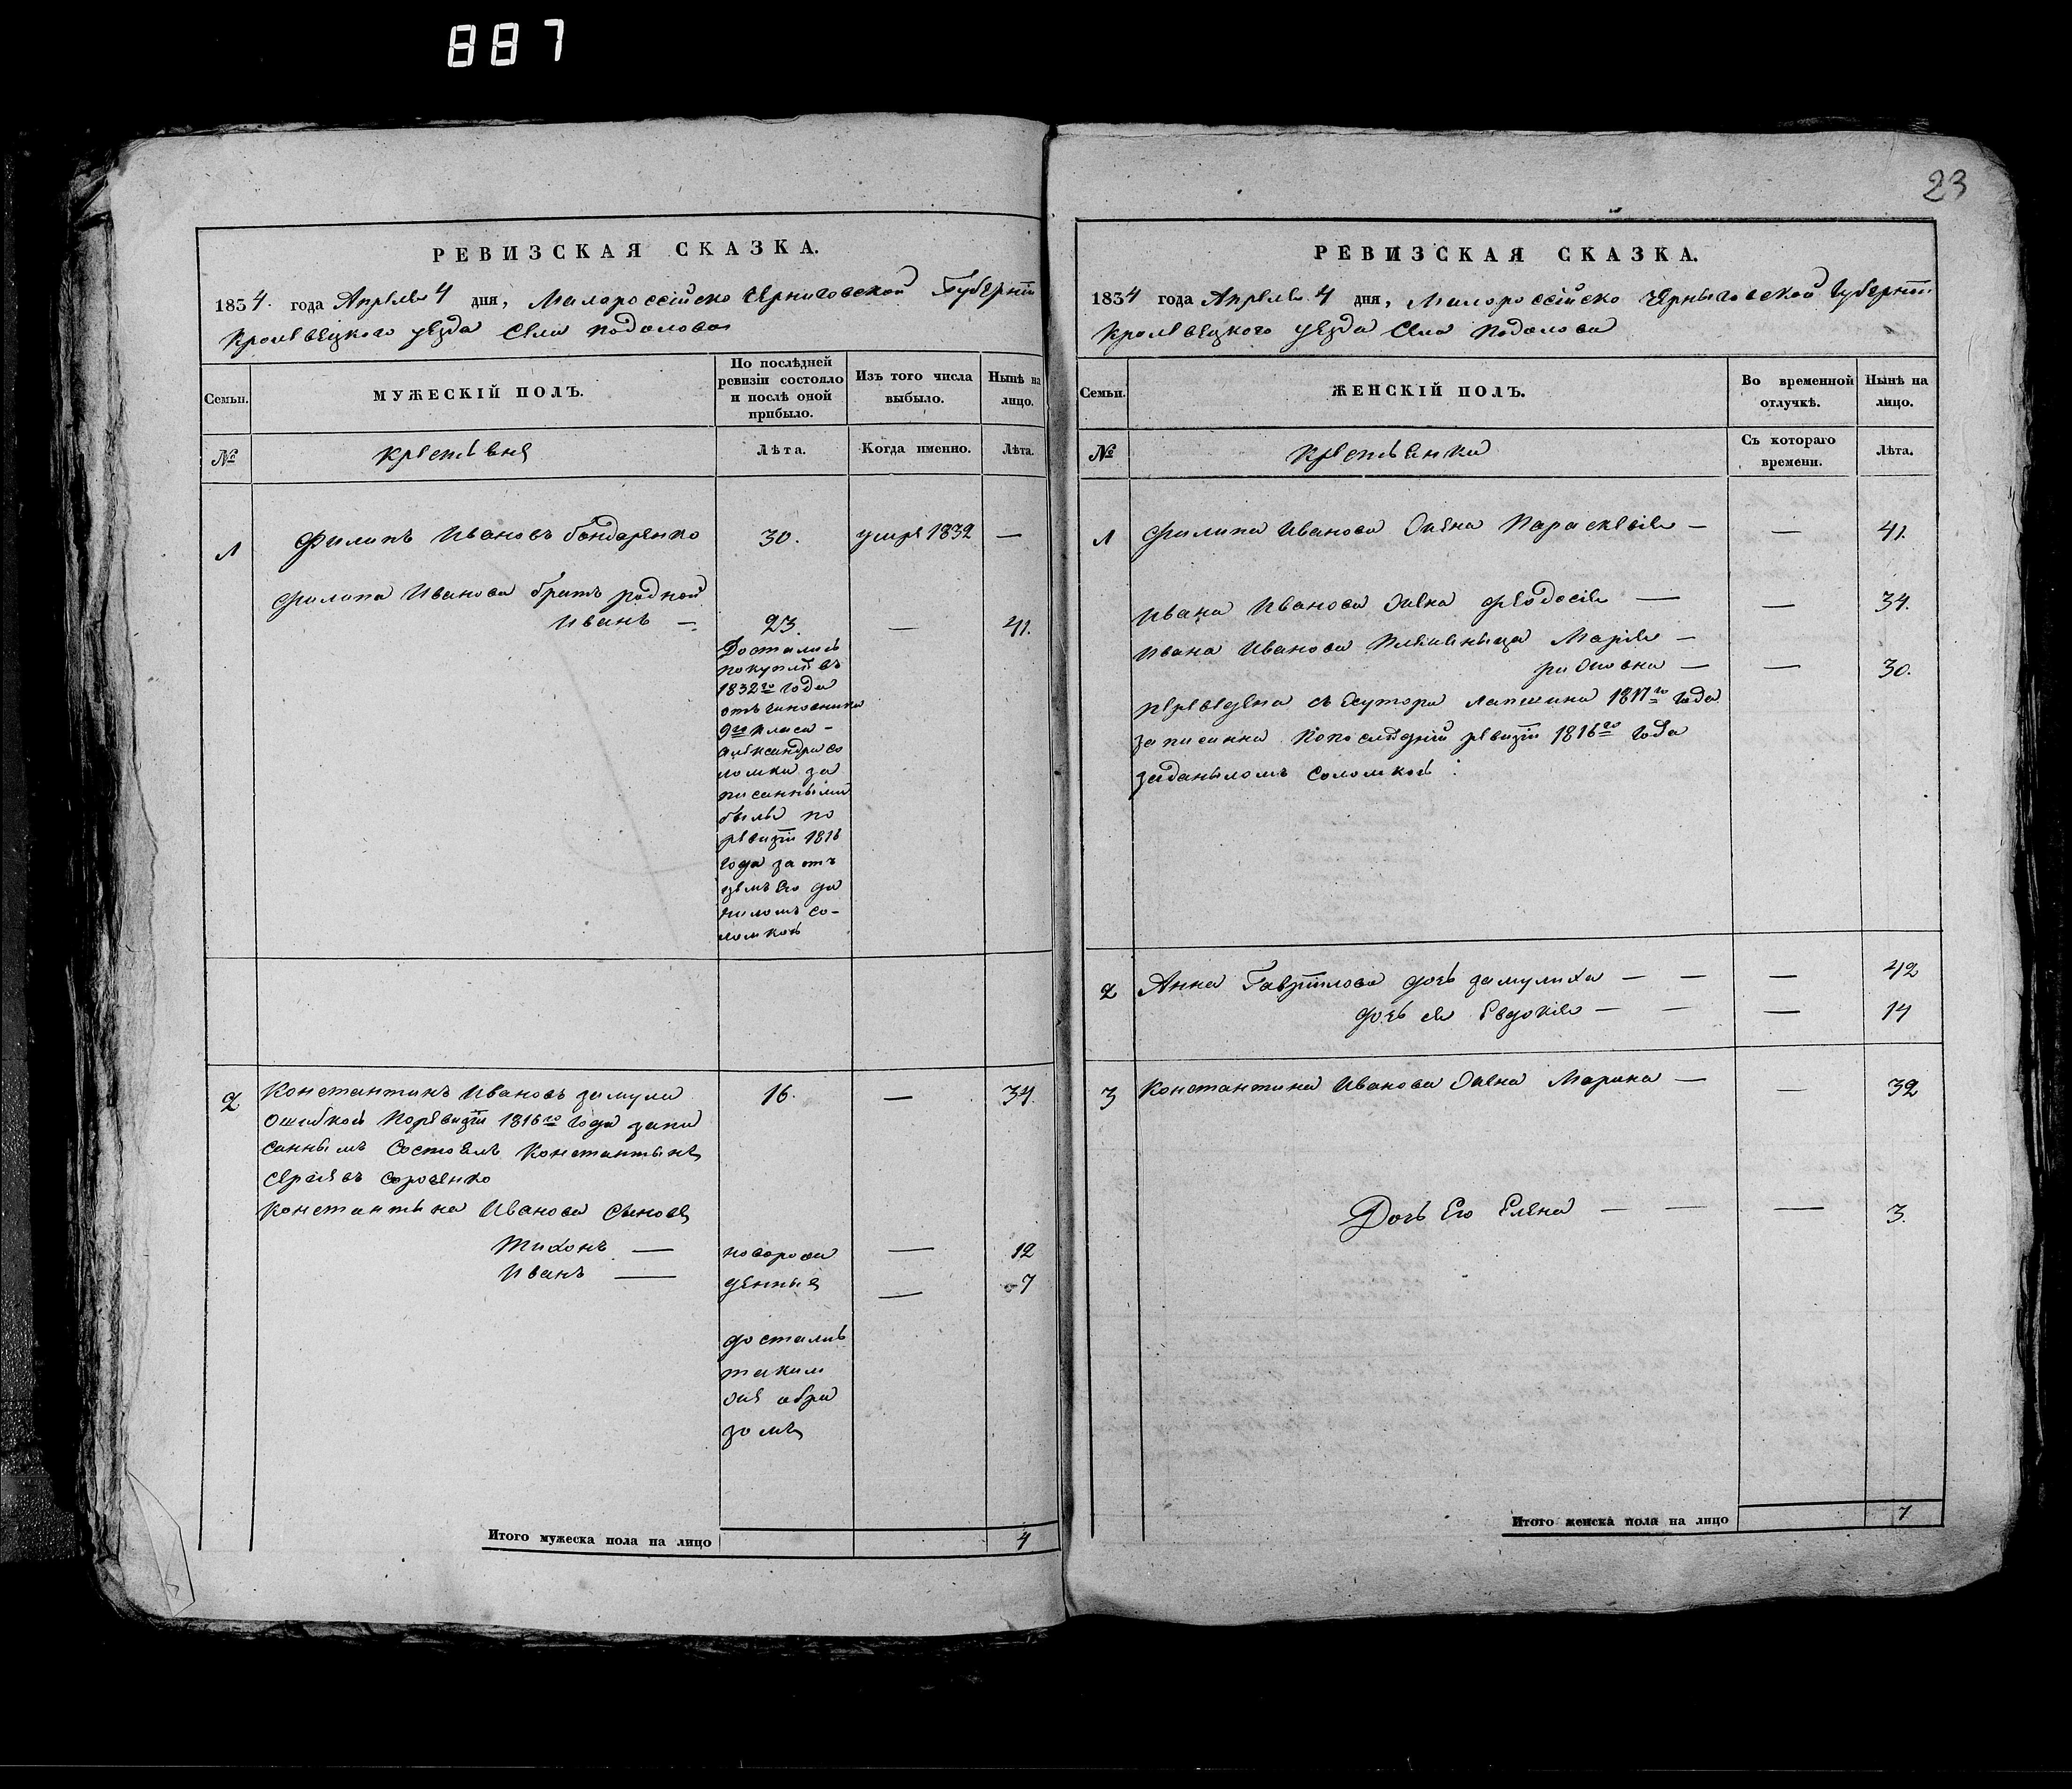 887
23
РЕВИЗСКАЯ СКАЗКА.
1834. года Апреля 4 дня, Малороссійско Черниговской Губерніи
Кролевецкого уезда Села Подолова
Семьи.
МУЖЕСКІЙ ПОЛЪ.
По послѣдней ревизіи состояло и послѣ оной прибыло.
Изъ того числа выбыло.
Нынѣ на лицо.
№
Крестьяне
Лѣта.
Когда именно.
Лѣта.
1 Филипъ Ивановъ Бондаренко 30. умре 1832 —
Филипа Иванова братъ родной
Иванъ — 23. — 41.
Достались
покупкѣ въ
1832го года
отъ чиновника
9го класа –
Александра Со
ломки за
писанными
были по
ревизіи 1816
года за от
цемъ Его Да
ниломъ Со-
ломкой
2 Константинъ Ивановъ Замула 16. — 34.
Ошибкой Поревизіи 1816го года запи
саннымъ Состоялъ Константынъ
Сергѣевъ Сороченко
Константына Иванова Сыновя
Тихонъ — новорож — 12
Иванъ — денные — 7
достались
таким
же обра
зомъ
Итого мужеска пола на лицо 4
РЕВИЗСКАЯ СКАЗКА.
1834 года Апреля 4 дня, Малороссійско Черныговской Губерніи
Кролевецкого уезда Села Подолова
Семьи.
ЖЕНСКІЙ ПОЛЪ.
Во временной отлучкѣ.
Нынѣ на лицо.
№
Крестьянки
Съ котораго времени.
Лѣта.
1 Филипа Иванова Жена Параскевія — — 41.
Ивана Иванова Жена Феодосія — — 34.
Ивана Иванова Племяныца Марія —
— — 30.
Переведена съ Хутора Лапшина 1817го года
записанна Попоследнѣй ревизіи 1816го года
заданыломъ Соломкой
2 Анна Гавріилова дочь Замулиха — — — 42
дочь ея Евдокія — — — 14
3 Константина Иванова Жена Марина — — 32
Дочь Его Елена — — — 3.
Итого женска пола на лицо 7